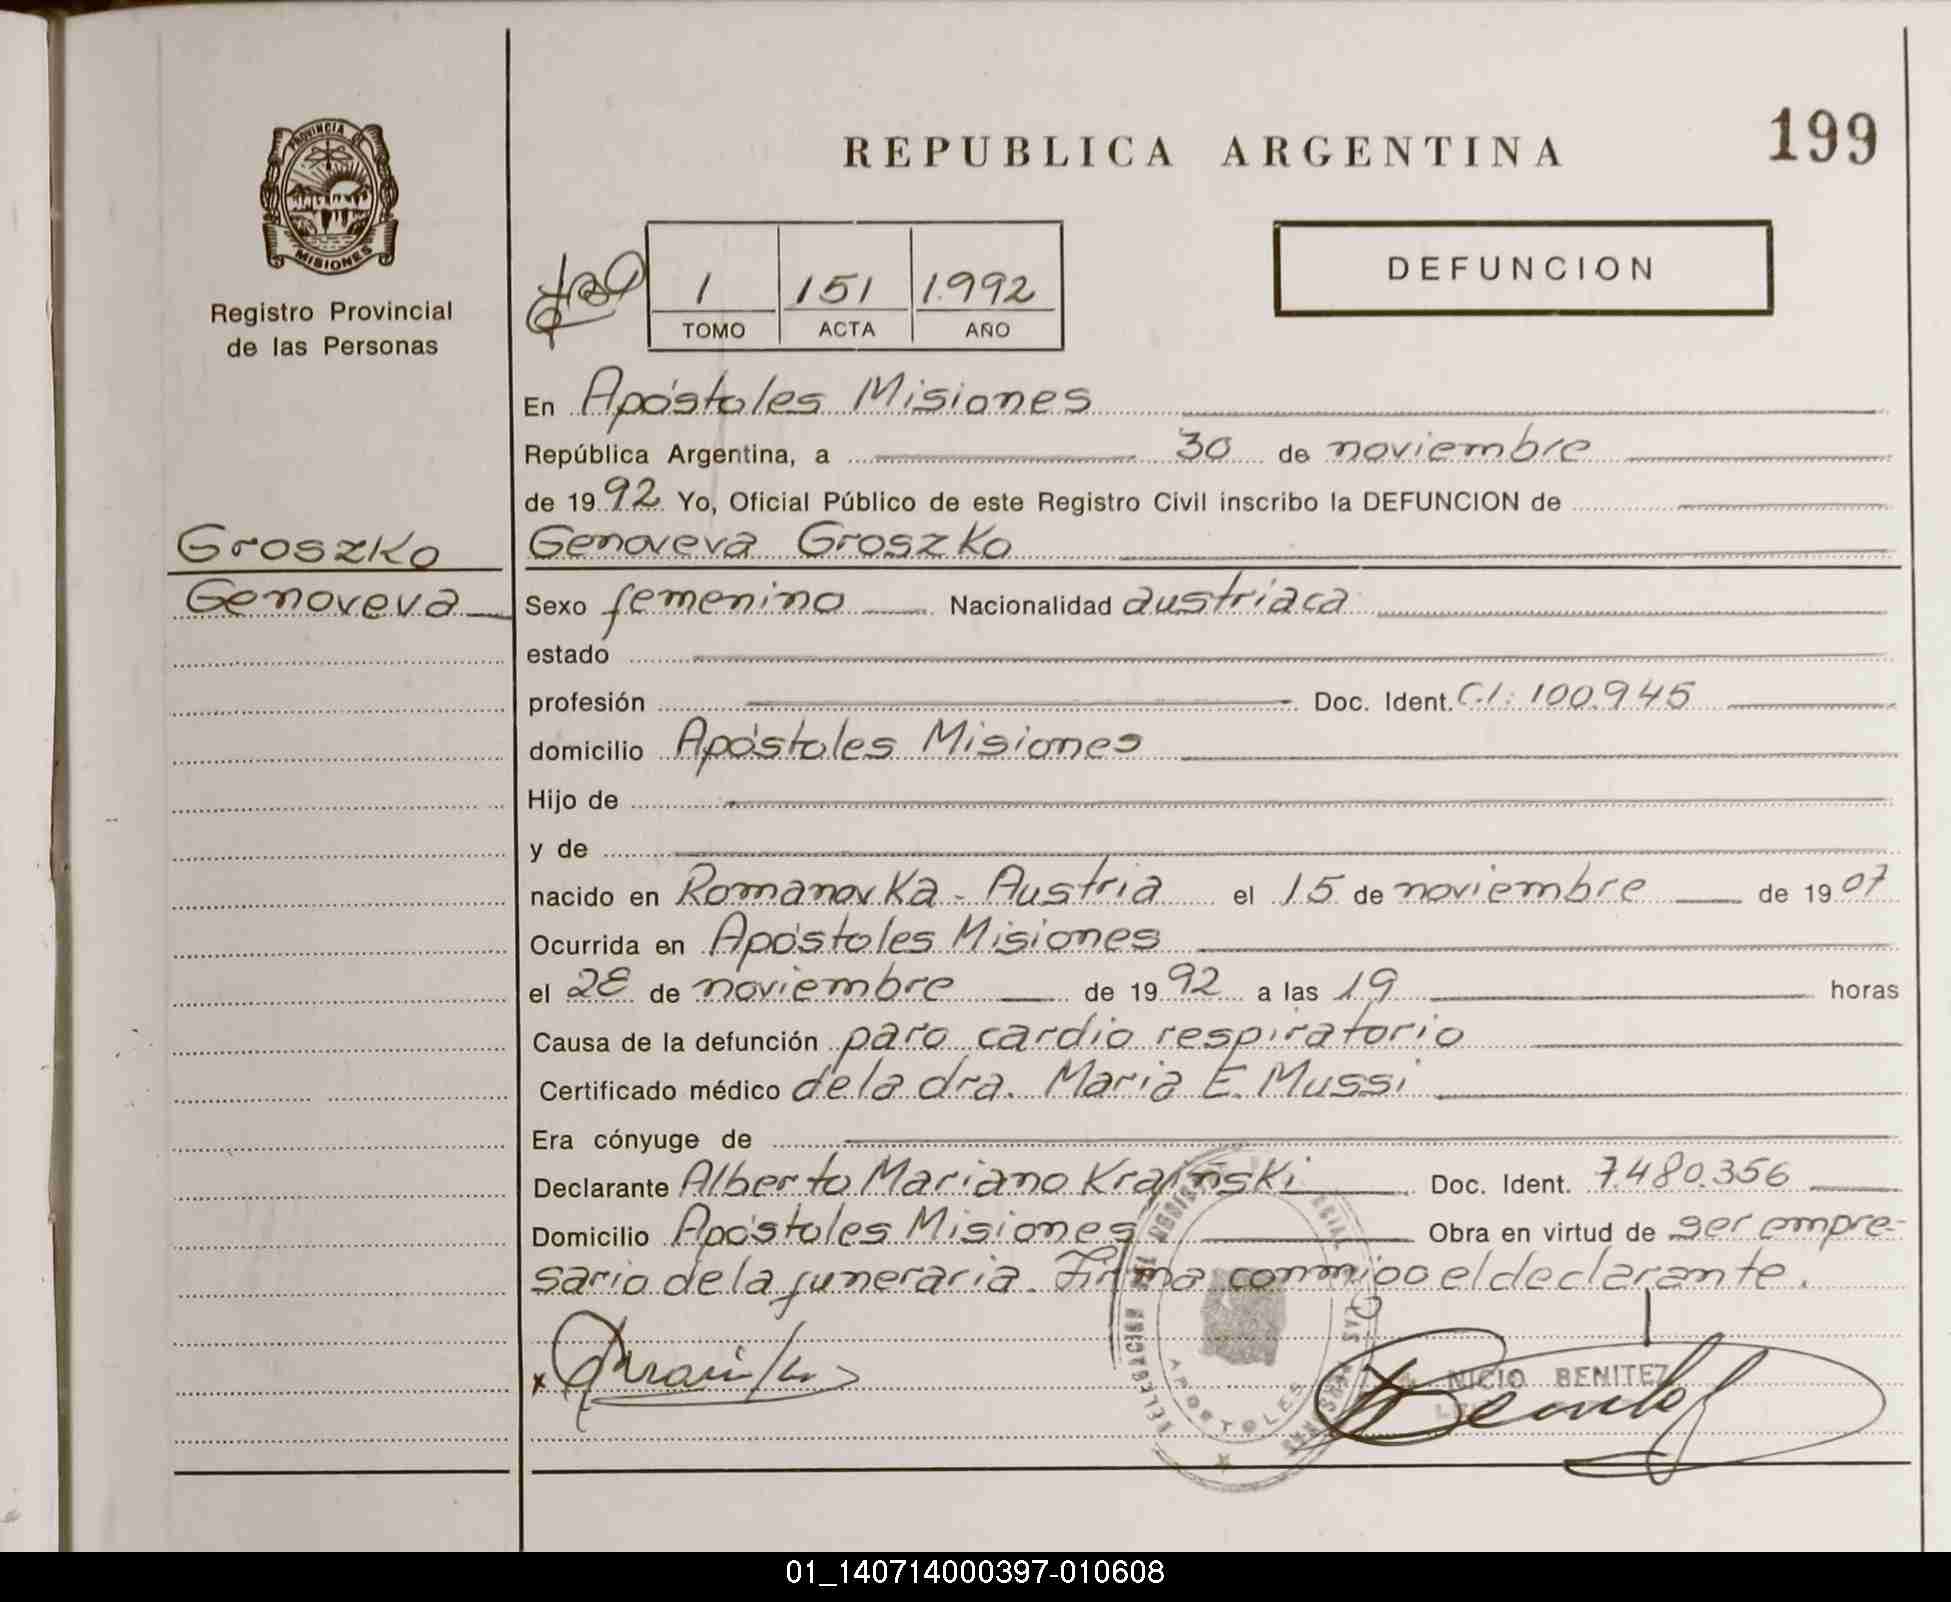 PROVINCIA
MISIONES
Registro Provincial
de las Personas
REPUBLICA ARGENTINA
199
1 151 1992
TOMO ACTA AÑO
DEFUNCION
En Apóstoles Misiones
República Argentina, a 30 de noviembre
de 1992 Yo, Oficial Público de este Registro Civil inscribo la DEFUNCION de
Groszko
Genoveva
Genoveva Groszko
Sexo femenino Nacionalidad austriaca
estado
profesión Doc. Ident. C.I: 100.945
domicilio Apóstoles Misiones
Hijo de
y de
nacido en Romanovka - Austria el 15 de noviembre de 1907
Ocurrida en Apóstoles Misiones
el 28 de noviembre de 1992 a las 19 horas
Causa de la defunción paro cardio respiratorio
Certificado médico de la dra. Maria E. Mussi
Era cónyuge de
Declarante Alberto Mariano Kraiñski Doc. Ident. 7.480.356
Domicilio Apóstoles Misiones Obra en virtud de ser empre-
sario de la funeraria. Firma conmigo el declarante.
NICIO BENITEZ
APOSTOLES
01_140714000397-010608